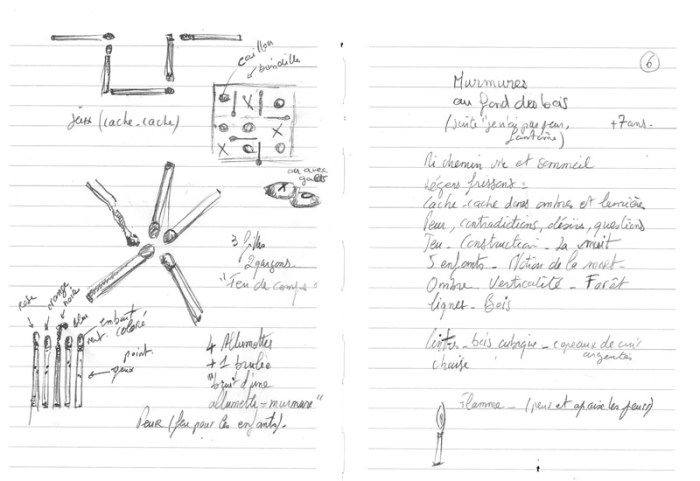 caillou
brindille
jeux (cache-cache)
ou avec
galets
3 filles
2 garçons
"Feu de camp"
rose
orange
noir
bleu
embout
coloré
point
4 Allumettes
+ 1 brulée
"bruit d'une
allumette = murmure"
Peur (feu pour les enfants).
6
Murmures
au fond des bois
(suite "je n'ai pas peur,
fantôme)
+7 ans.
Mi chemin vie et sommeil
Légers frissons:
Cache-cache dans ombres et lumière
Peur, contradictions, désirs, questions
Jeu - Construction - La nuit
5 enfants - Notion de la mort -
Ombre - Verticalité - Forêt
lignes - Bois
bois - copeaux de cuir
argentés
chaise
Flamme - (peur et apaise les peurs)